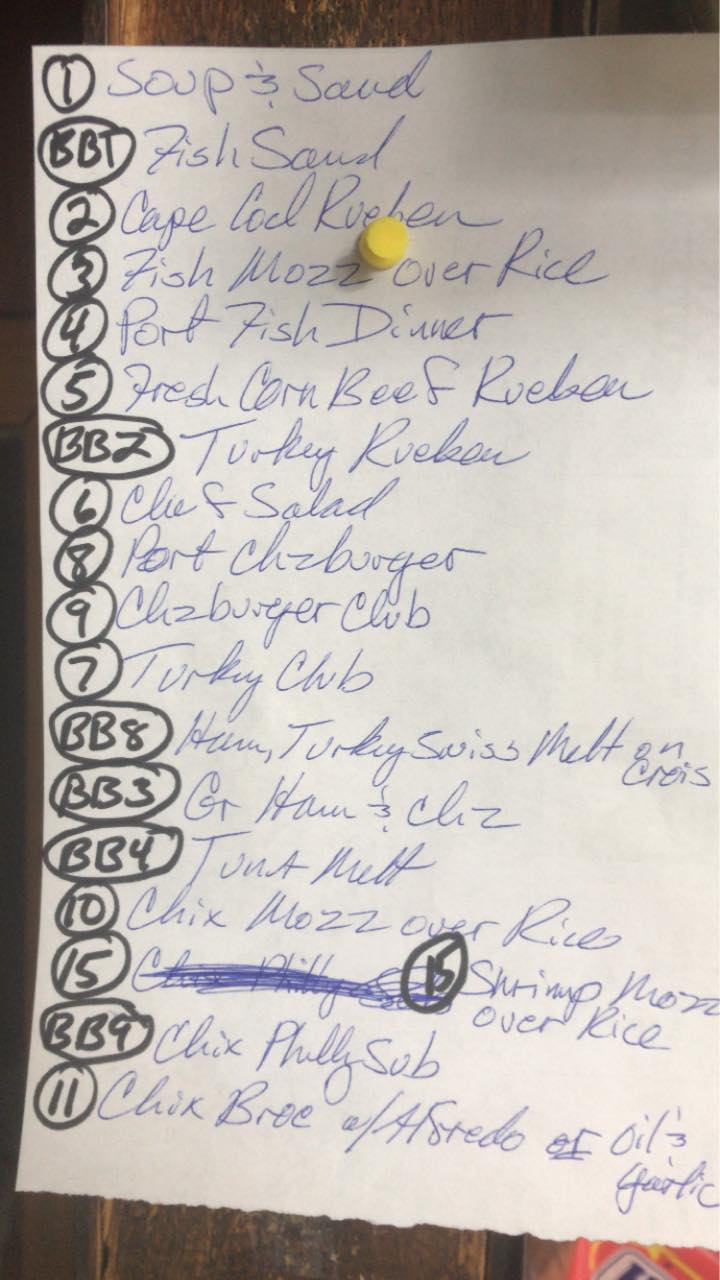 1 Soup & Sand
BBT Fish Sand
2 Cape Cod Rueben
3 Fish Mozz over Rice
4 Port Fish Dinner
5 Fresh Corn Beef Rueben
BB2 Turkey Rueben
6 Chef Salad
8 Port Chzburger
9 Chzburger Club
7 Turkey Club
BB8 Ham, Turkey Swiss Melt on
Crois
BB3 Gr Ham & Chz
BB4 Tuna Melt
10 Chix Mozz over Rice
15 15 Shrimp Mozz
over Rice
BB9 Chix Philly Sub
11 Chix Broc w/Alfredo or Oil &
Garlic